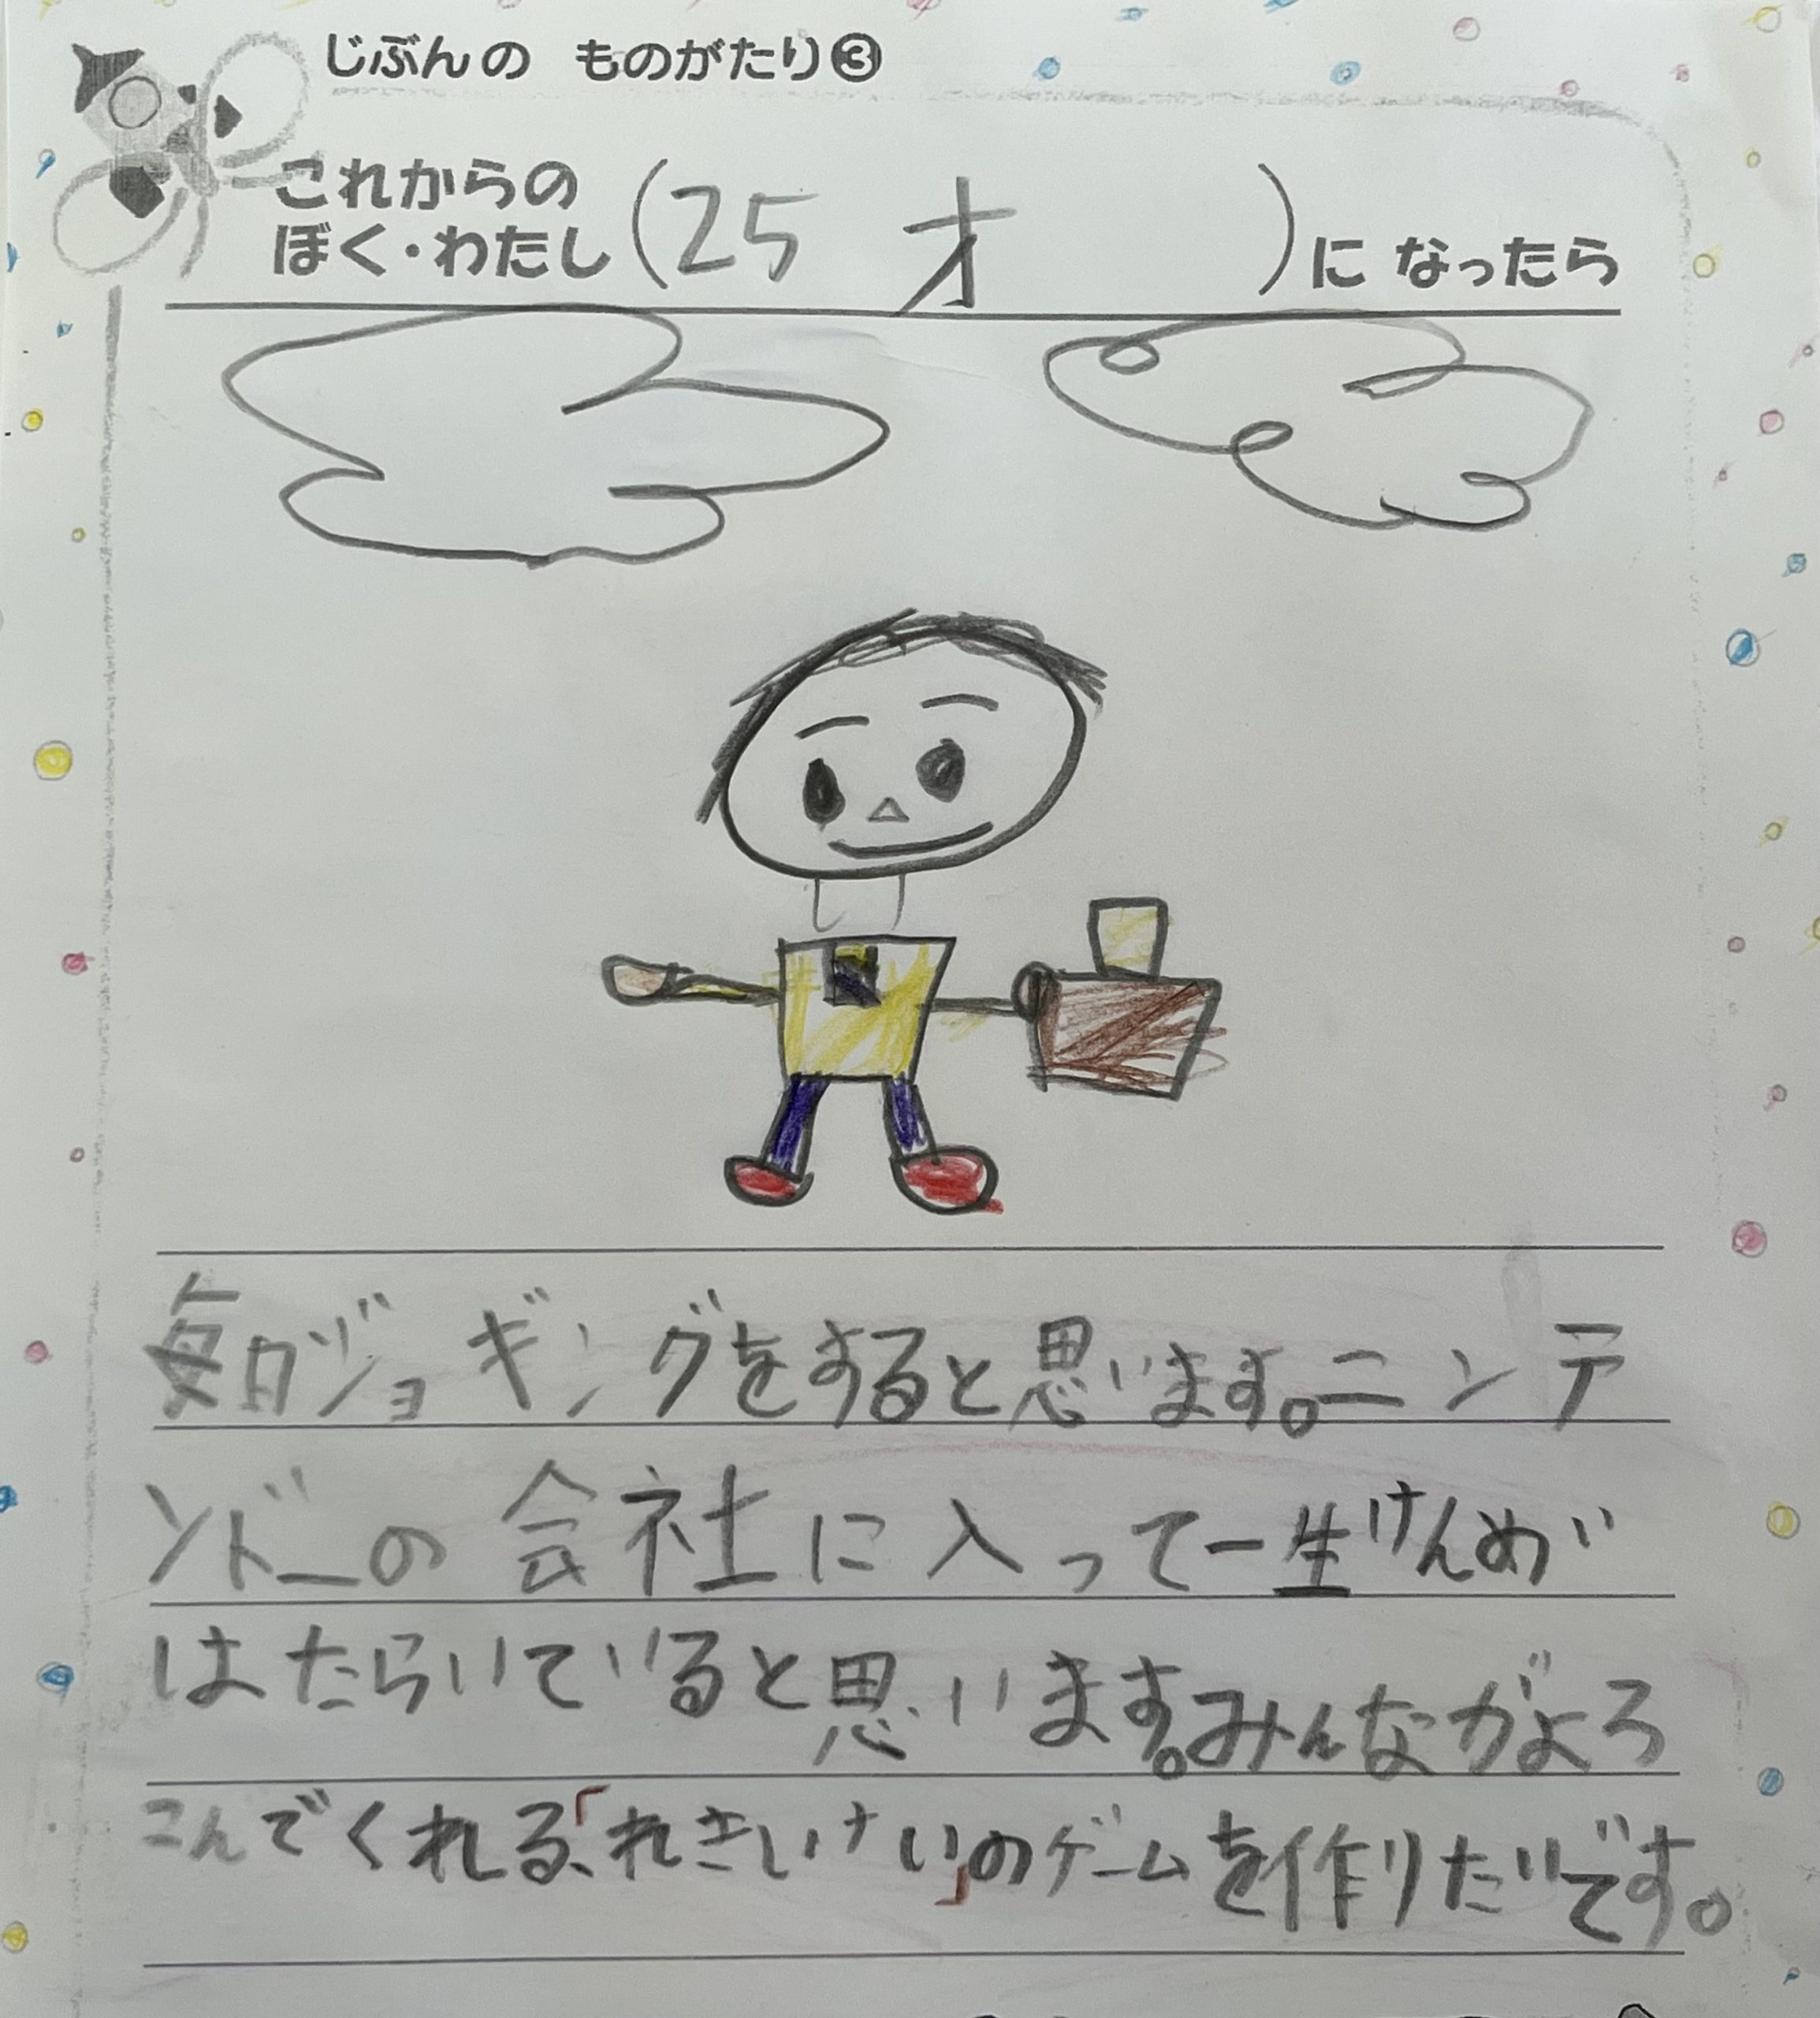 じぶんの ものがたり③
これからの
ぼく・わたし(25 才 )に なったら
毎日ジョギングをすると思います。ニンテ
ンドーの会社に入って一生けんめい
はたらいていると思います。みんながよろ
こんでくれる、「れきしけい」のゲームを作りたいです。